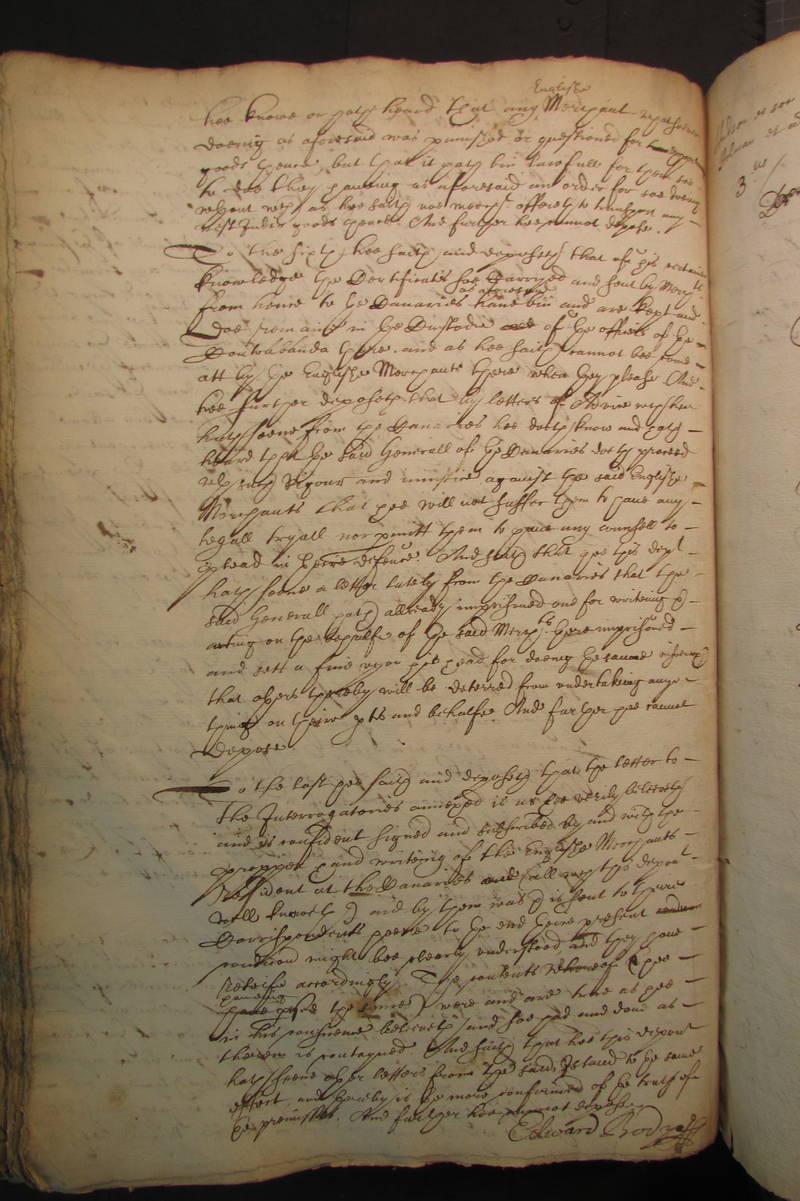 English
hee knowe or hath heard that any Merchant
doeing as aforesaid was punished or questioned for
goods thence, but that it hath bin lawfull for them soe
to doe they haveing as aforesaid an order for soe doeing
without which as hee saith noe Merchts offered to transport any
West India goods thence. And further hee cannot depose.
To the sixth hee saith and deposeth that of his certaine
knowledge the Certificates soe carryed and sent by Merchts
as aforesaid
from hence to the Canaries have bin and are kept and
doe remaine in the Custodie of the officers of the
Contrabanda there and as hee saith cannot bee come
att by the English Merchants there when they please And
hee further deposeth that by letters of Advise which hee
hath seene from the Canaries hee doth know and hath
heard that the said Generall of the Canaries doth proceed
with such Rigour and injustice against the said English
Merchants that hee will not suffer them to have any
legall tryall nor permitt them to have any counsell to
plead in theire defence. And saith that hee this dept
hath seene a letter lately from the Canaries that the
said Generall hath allready imprisoned one for writeing or
acting on the behalfe of the said Merchts there imprisoned
and sett a fine upon his head for doeing the same
that others thereby will be deterred from undertaking any
thing on their pts and behalfe. And further hee cannot
depose.
To the last hee saith and deposeth that the letter to
the Interrogatories annexed is as hee verily beleeveth
and is confident signed and subscribed by and with the
proper hand writeing of the English Merchants
Resident at the Canaries (all which this depont
well knoweth) and by them was is sent to their
Correspondents heere to the end theire present
condition might bee clearly understood and they have
releife accordingly. The contents whereof hee
haveing
the same were and are true as hee
in his conscience beleeveth and soe had and done as
therein is contayned. And saith that hee this deponent
hath seene other letters from the said Island to the same
effect and thereby is the more confirmed of the truth of
the premisses. And further hee cannot depose.
Edward
3